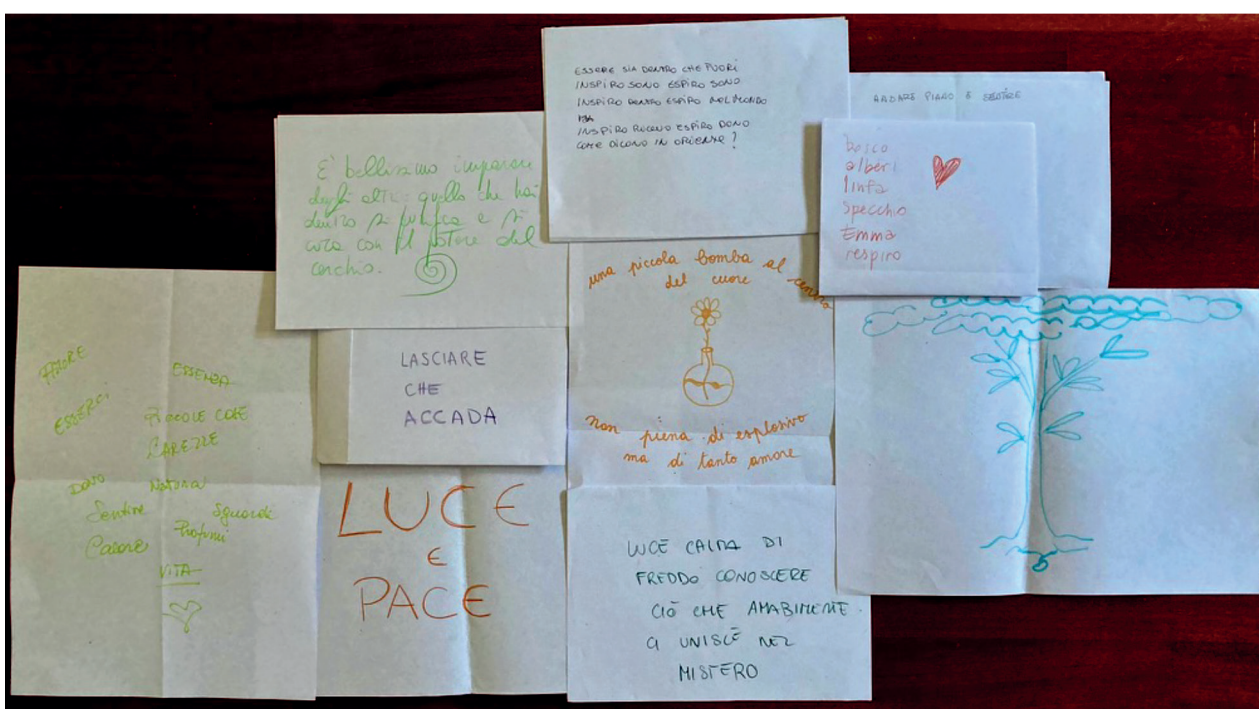 ESSERE SIA DENTRO CHE FUORI
INSPIRO SONO ESPIRO SONO
INSPIRO DENTRO ESPIRO NEL MONDO
INSPIRO ESPIRO DONO
COME DICONO IN ORIENTE?
ANDARE PIANO E SENTIRE
bosco
alberi
linfa
specchio
Emma
respiro
E' bellissimo imparare
dagli altri: quello che hai
dentro si purifica e si
cura con il potere del
cerchio.
una piccola bomba al centro
del cuore
non piena di esplosivo
ma di tanto amore
LASCIARE
CHE
ACCADA
AMORE
ESSENZA
ESSERCI
PICCOLE COSE
CAREZZE
DONO
Natura
Sentire
Sguardi
Calore
Profumi
VITA
LUCE
E
PACE
LUCE CALDA DI
FREDDO CONOSCERE
CIÒ CHE AMABILMENTE
CI UNISCE NEL
MISTERO